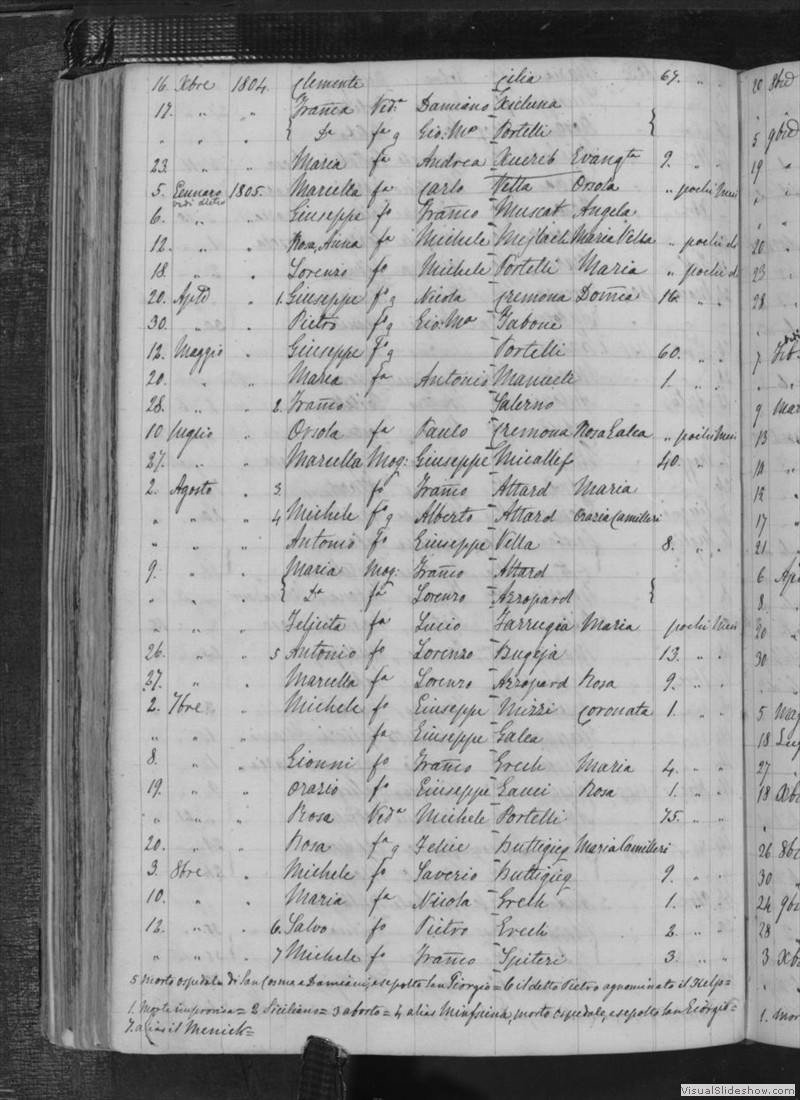 16. Xbre 1804. Clemente Cilia 67. " "
17. " " Franca Ved.a Damiano Xicluna
" " " { Da fa g Gio: Ma Portelli }
23. " " Maria fa Andrea Xuereb Evangta 9. " "
5. Gennaro 1805. Marcella fa Carlo Vella Orsola " pochi Mesi
6. " " Giuseppe fo Franco Muscat Angela
12. " " Rosa, Anna fa Michele Maria Vella " pochi d
18. " " Lorenzo fo Michele Portelli Maria " pochi d
20. Aple " 1. Giuseppe fo g Nicola Cremona Domca 16. " "
30. " " Pietro fo g Gio: Ma Tabone
12. Maggio " Giuseppe fo g Portelli 60. " "
20. " " Maria fa Antonio Mamueli 1. " "
28. " " 2. Franco Salerno
10 Luglio " Orsola fa Paulo Cremona Rosa Galea " pochi Mesi
27. " " Marcella Mog: Giuseppe Micallef 40. " "
2. Agosto " 3. fo Franco Attard Maria
" " " 4 Michele fo g Alberto Attard Grazia Camilleri
" " " Antonio fo Giuseppe Vella 8. " "
9. " " Maria Mog: Franco Attard
" " " { Da fa Lorenzo Azzopard }
" " " Felicita fa Lucio Farrugia Maria pochi Mesi
26. " " 5 Antonio fo Lorenzo Bugeja 13. " "
27. " " Marcella fa Lorenzo Azzopard Rosa 9. " "
2. 7bre " Michele fo Giuseppe Mizzi Coronata 1. " "
" " " fa Giuseppe Galea
8. " " Gionni fo Franco Grech Maria 4. " "
19. " " Orazio fo Giuseppe Gauci Rosa 1. " "
" " " Rosa Ved.a Michele Portelli 75. " "
20. " " Rosa fa g Felice Buttigieg Maria Camilleri
3. 8bre " Michele fo Saverio Buttigieg 9. " "
10. " " Maria fa Nicola Grech 1. " "
12. " " 6. Salvo fo Pietro Grech 2. " "
" " " 7 Michele fo Franco Spiteri 3. " "
5 morto ospedale di San Cosma e Damiano, e sepolto San Giorgio = 6 il detto Pietro agnominato il Help =
1. Morte improvisa = 2 Siciliano = 3 aborto = 4 alias morto ospedale, e sepolto San Giorgio =
7. alias il Menick =
20 8bre
5 9bre
19
20
23
28
7
9 Mar
13
14
15
17
21
6 Ap
8.
20
30
5 Mag
18 Lug
27
18 Xb
26 8b
30
24 9b
28
3 Xb
1. mor
VisualSlideshow.com